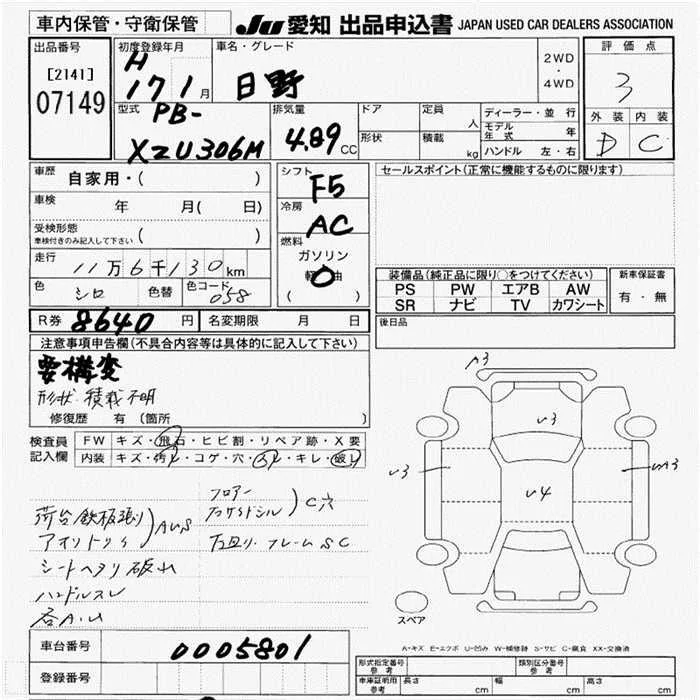 車内保管・守衛保管
JU 愛知 出品申込書 JAPAN USED CAR DEALERS ASSOCIATION
出品番号
[2141]
07149
初度登録年月
H
17 1月
車名・グレード
日野
2WD
・
4WD
評価点
3
外装 内装
D C
型式
PB-
XZU306M
排気量
4.89 CC
ドア
形状
定員
人
積載
kg
ディーラー・並行
モデル年式 年
ハンドル 左・右
車歴
自家用・( )
車検
年 月( 日)
受検形態
車検付きのみ記入して下さい ( )
走行
11万6千130km
色
シロ
色替
色コード
058
シフト
F5
冷房
AC
燃料
ガソリン
軽油
( )
セールスポイント(正常に機能するものに限ります)
装備品(純正品に限り○をつけてください)
PS PW エアB AW
SR ナビ TV カワシート
新車保証書
有・無
後日品
R券 8640 円 名変期限 月 日
注意事項申告欄(不具合内容等は具体的に記入して下さい)
要構変
形状・積載不明
修復歴 有(箇所 )
検査員
記入欄
FW キズ・飛石・ヒビ割・リペア跡・X要
内装 キズ・汚れ・コゲ・穴・スレ・キレ・破レ
荷台鉄板張り
アオリトリイ
AUS
シートヘタリ破れ
ハンドルスレ
各A.U
フロアー
C穴
下廻り・フレームSC
A3
U3
U3
U4
UA3
スペア
A-キズ E-エクボ U-凹み W-補修跡 S-サビ C-腐食 XX-交換済
車台番号
0005801
登録番号
形式指定番号 参考
類別区分番号 参考
車庫証明用 参考
長さ cm
幅 cm
高さ cm